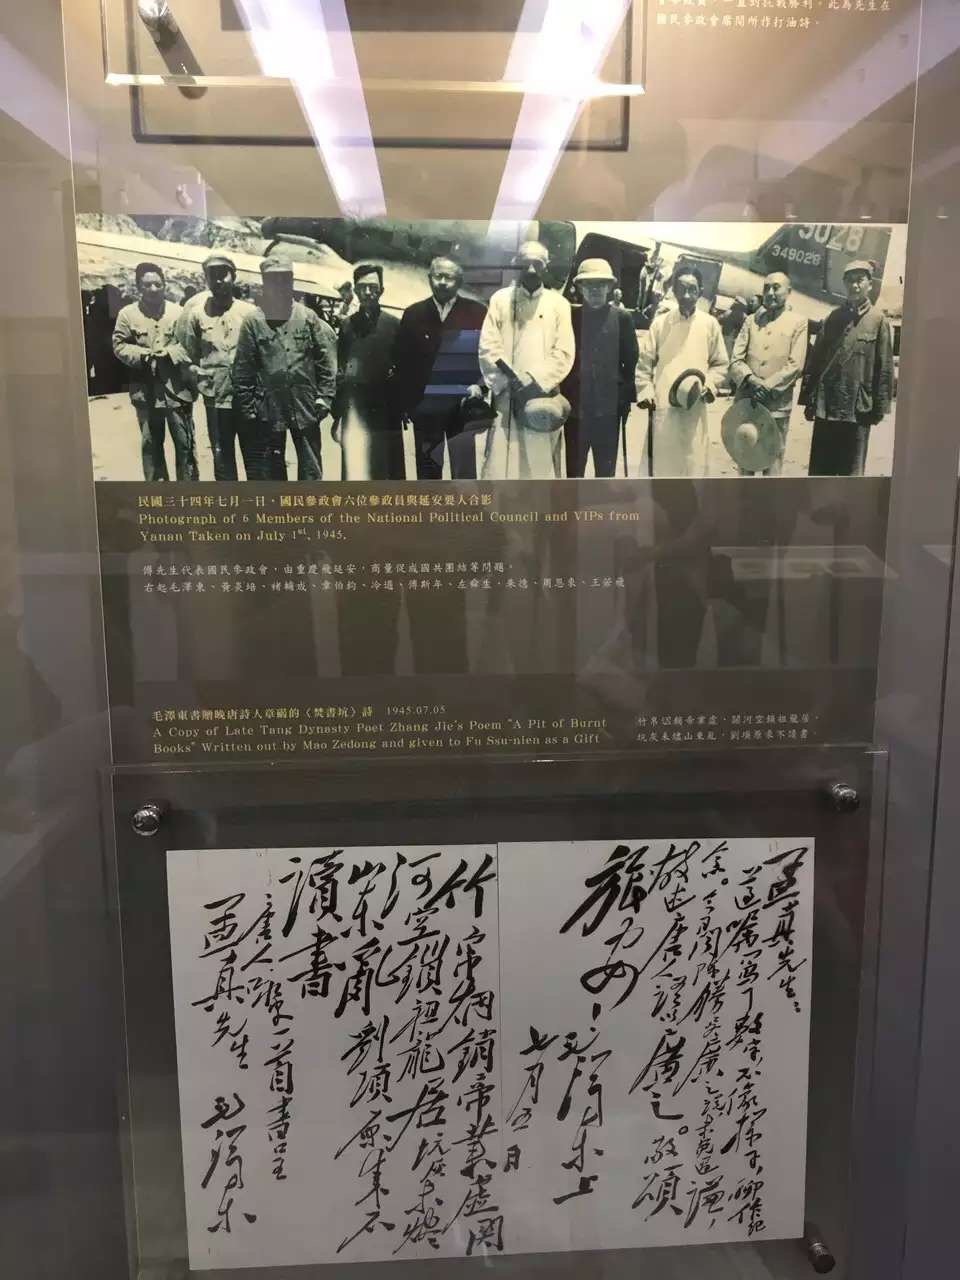 一直到抗戰勝利。此為先生在
國民參政會席間所作打油詩。
3028
349028
民國三十四年七月一日，國民參政會六位參政員與延安要人合影
Photograph of 6 Members of the National Political Council and VIPs from
Yanan Taken on July 1st, 1945.
傅先生代表國民參政會，由重慶飛延安，商量促成國共團結等問題。
右起毛澤東、黃炎培、褚輔成、章伯鈞、冷遹、傅斯年、左舜生、朱德、周恩來、王若飛
毛澤東書贈晚唐詩人章碣的〈焚書坑〉詩 1945.07.05
A Copy of Late Tang Dynasty Poet Zhang Jie's Poem "A Pit of Burnt
Books" Written out by Mao Zedong and given to Fu Ssu-nien as a Gift
竹帛烟銷帝業虛，關河空鎖祖龍居。
坑灰未燼山東亂，劉項原來不讀書。
孟真先生：
遵囑寫了數字，不像樣子，聊作紀
念。今日間陳勝吳廣之說，未免過謙，
故述唐人詩以廣之。敬頌
旅安！
毛澤東上
七月五日
竹帛烟銷帝業虛關
河空鎖祖龍居坑灰未燼
山東亂劉項原來不
讀書
唐人咏史一首書呈
孟真先生 毛澤東